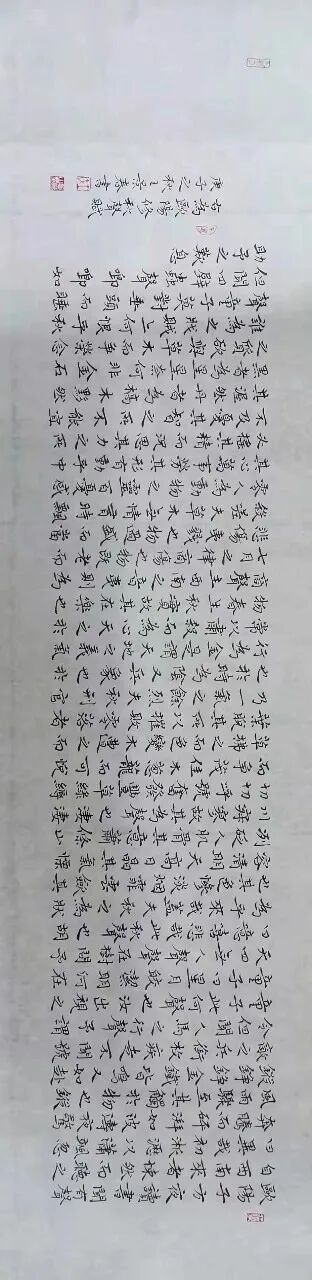 歐陽子方夜讀書聞有聲
自西南來者悚然而聽之
曰異哉初淅瀝以瀟颯忽
奔騰而砰湃如波濤夜驚
風雨驟至其觸於物也鏦
鏦錚錚金鐵皆鳴又如赴
敵之兵銜枚疾走不聞號
令但聞人馬之行聲予謂
童子此何聲也汝出視之
童子曰星月皎潔明河在
天四無人聲聲在樹間予
曰噫嘻悲哉此秋聲也胡
為乎來哉蓋夫秋之為狀
也其色慘淡煙霏雲斂其
容清明天高日晶其氣慄
冽砭人肌骨其意蕭條山
川寂寥故其為聲也淒淒
切切呼號奮發豐草綠縟
而爭茂佳木蔥蘢而可悅
草拂之而色變木遭之而
葉脫其所以摧敗零落者
乃一氣之餘烈夫秋刑官
也於時為陰又兵象也於
行為金是謂天地之義氣
常以肅殺而為心天之於
物春生秋實故其在樂也
商聲主西方之音夷則為
七月之律商傷也物既老而
悲傷夷戮也物過盛而當
殺嗟夫草木無情有時飄
零人為動物惟物之靈百憂感
其心萬事勞其形有動乎中
必搖其精而況思其力之所
不及憂其智之所不能宜
其渥然丹者為槁木黟然
黑者為星星奈何非金石
之質欲與草木而爭榮念
誰為之戕賊亦何恨乎秋
聲童子莫對垂頭而睡
但聞四壁蟲聲唧唧如
助予之歎息
右為歐陽修秋聲賦
庚子之秋王景春書